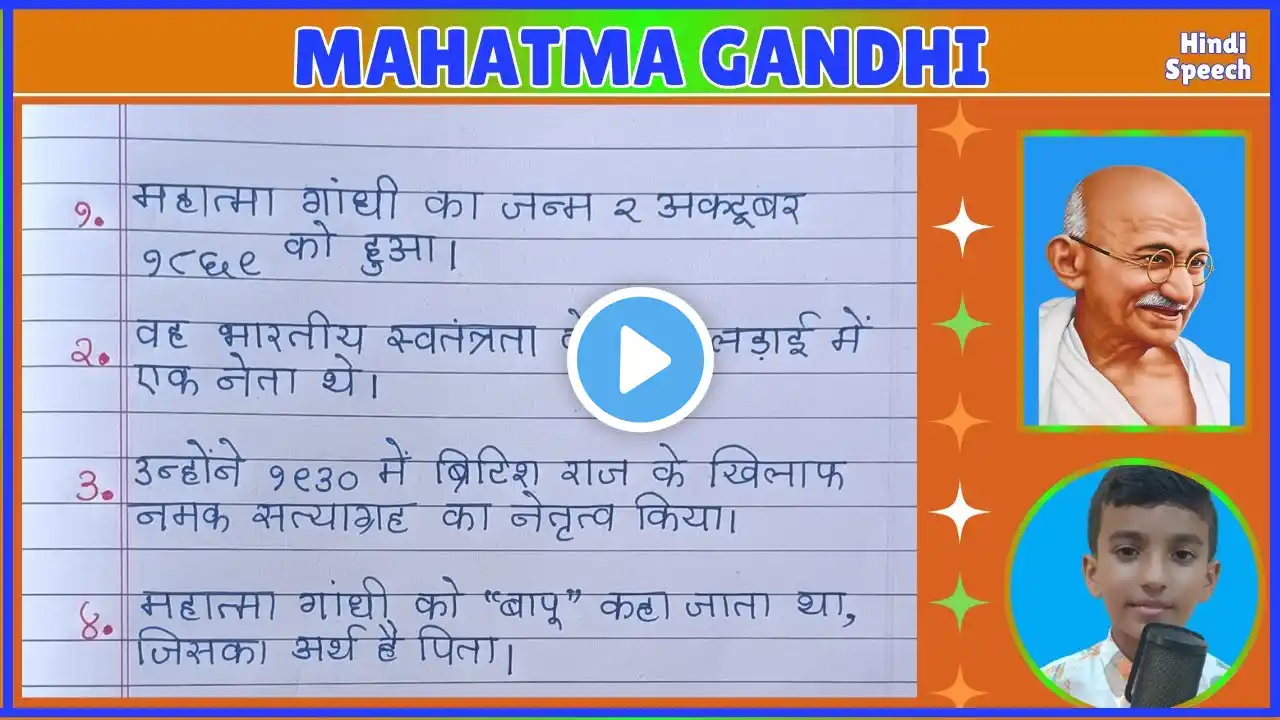 MAHATMA GANDHI
Hindi
Speech
१. महात्मा गांधी का जन्म २ अक्टूबर
१८६९ को हुआ।
२. वह भारतीय स्वतंत्रता लड़ाई में
एक नेता थे।
३. उन्होंने १९३० में ब्रिटिश राज के खिलाफ
नमक सत्याग्रह का नेतृत्व किया।
४. महात्मा गांधी को "बापू" कहा जाता था,
जिसका अर्थ है पिता।